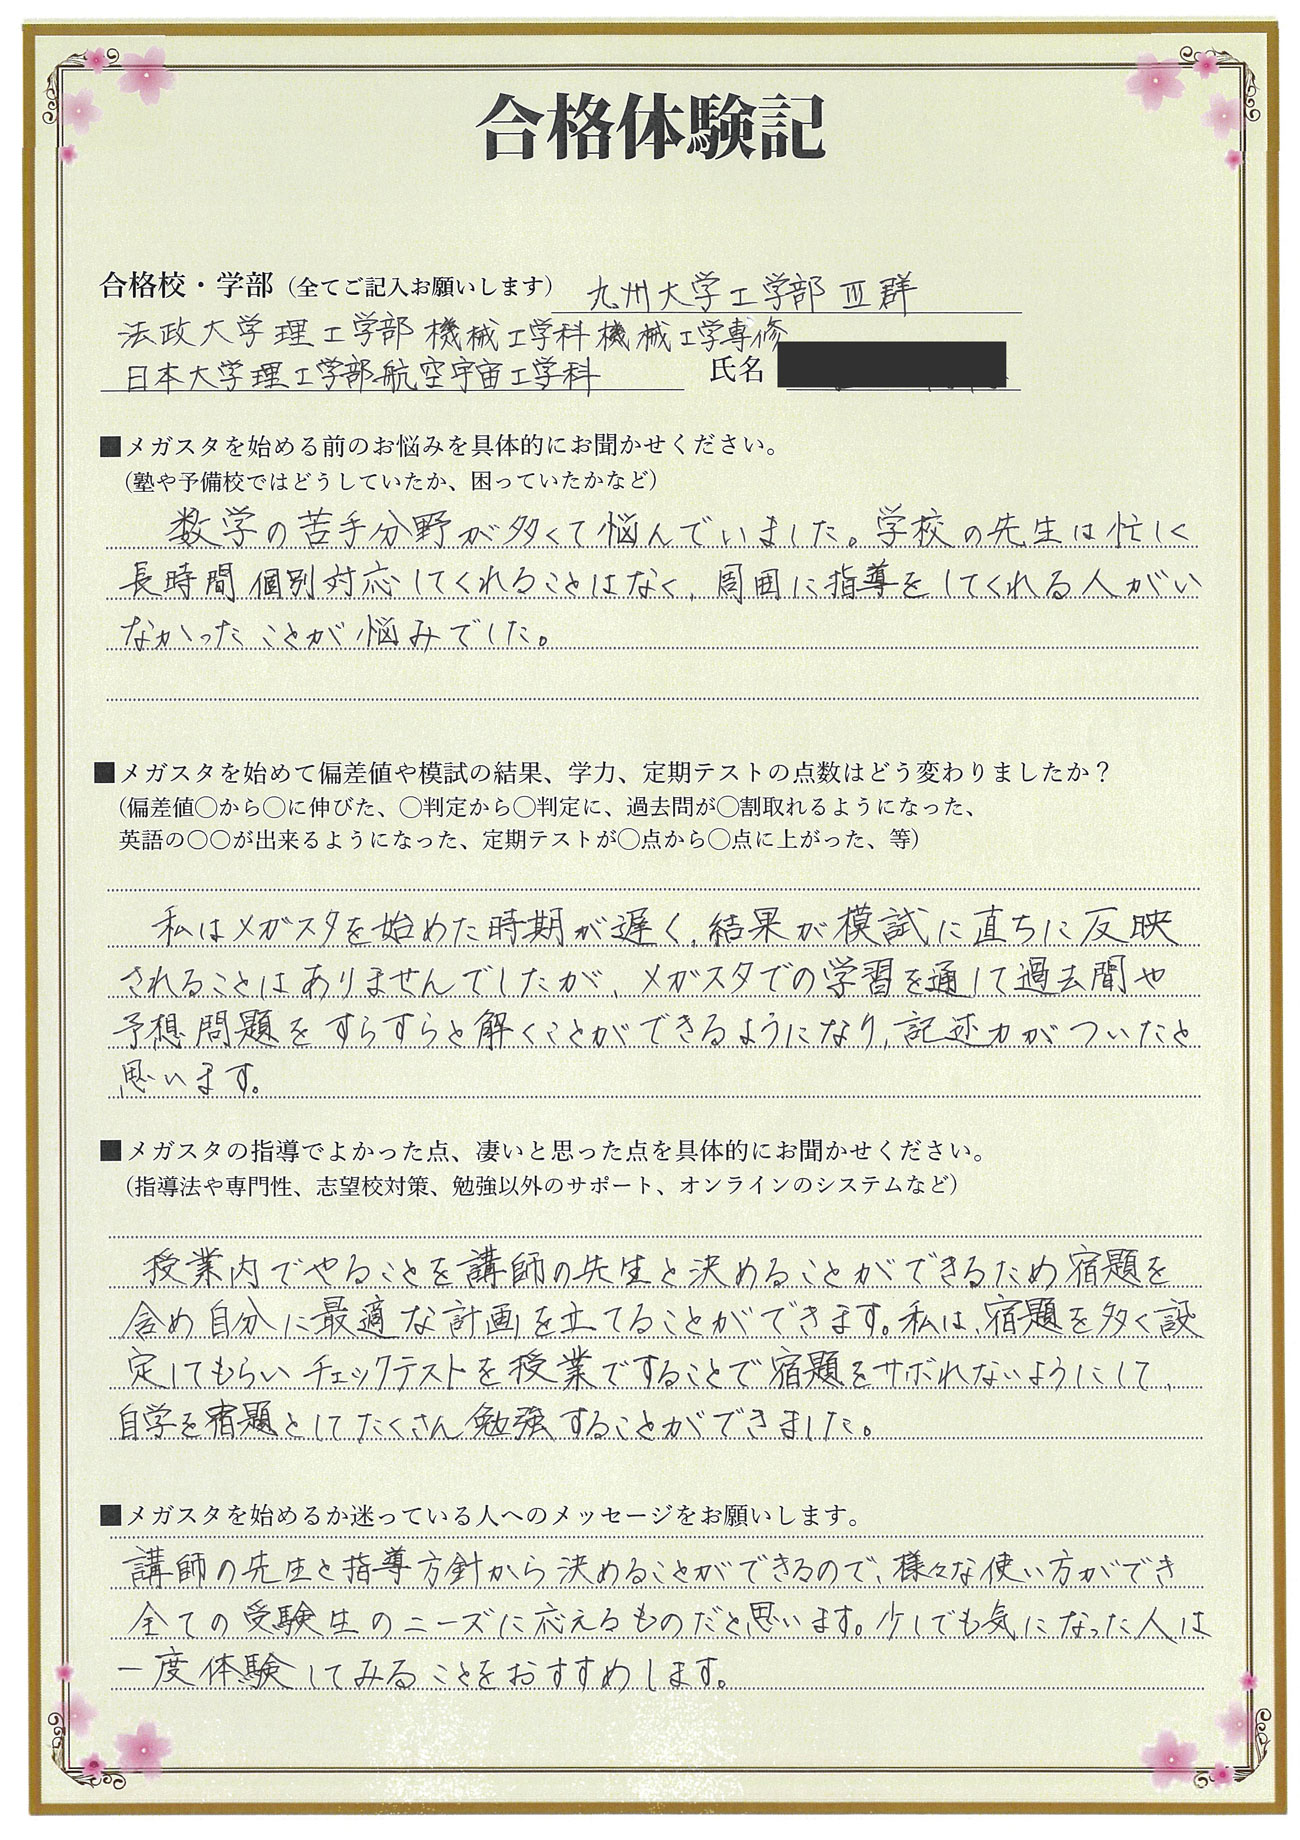 合格体験記
合格校・学部（全てご記入お願いします） 九州大学工学部Ⅲ群
法政大学理工学部機械工学科機械工学専修
日本大学理工学部航空宇宙工学科 氏名
■メガスタを始める前のお悩みを具体的にお聞かせください。
（塾や予備校ではどうしていたか、困っていたかなど）
数学の苦手分野が多くて悩んでいました。学校の先生は忙しく
長時間個別対応してくれることはなく、周囲に指導をしてくれる人がい
なかったことが悩みでした。
■メガスタを始めて偏差値や模試の結果、学力、定期テストの点数はどう変わりましたか？
（偏差値〇から〇に伸びた、〇判定から〇判定に、過去問が〇割取れるようになった、
英語の〇〇が出来るようになった、定期テストが〇点から〇点に上がった、等）
私はメガスタを始めた時期が遅く、結果が模試に直ちに反映
されることはありませんでしたが、メガスタでの学習を通して過去問や
予想問題をすらすらと解くことができるようになり、記述力がついたと
思います。
■メガスタの指導でよかった点、凄いと思った点を具体的にお聞かせください。
（指導法や専門性、志望校対策、勉強以外のサポート、オンラインのシステムなど）
授業内でやることを講師の先生と決めることができるため宿題を
含め自分に最適な計画を立てることができます。私は、宿題を多く設
定してもらいチェックテストを授業ですることで宿題をサボれないようにして、
自学を宿題としてたくさん勉強することができました。
■メガスタを始めるか迷っている人へのメッセージをお願いします。
講師の先生と指導方針から決めることができるので、様々な使い方ができ
全ての受験生のニーズに応えるものだと思います。少しでも気になった人は
一度体験してみることをおすすめします。